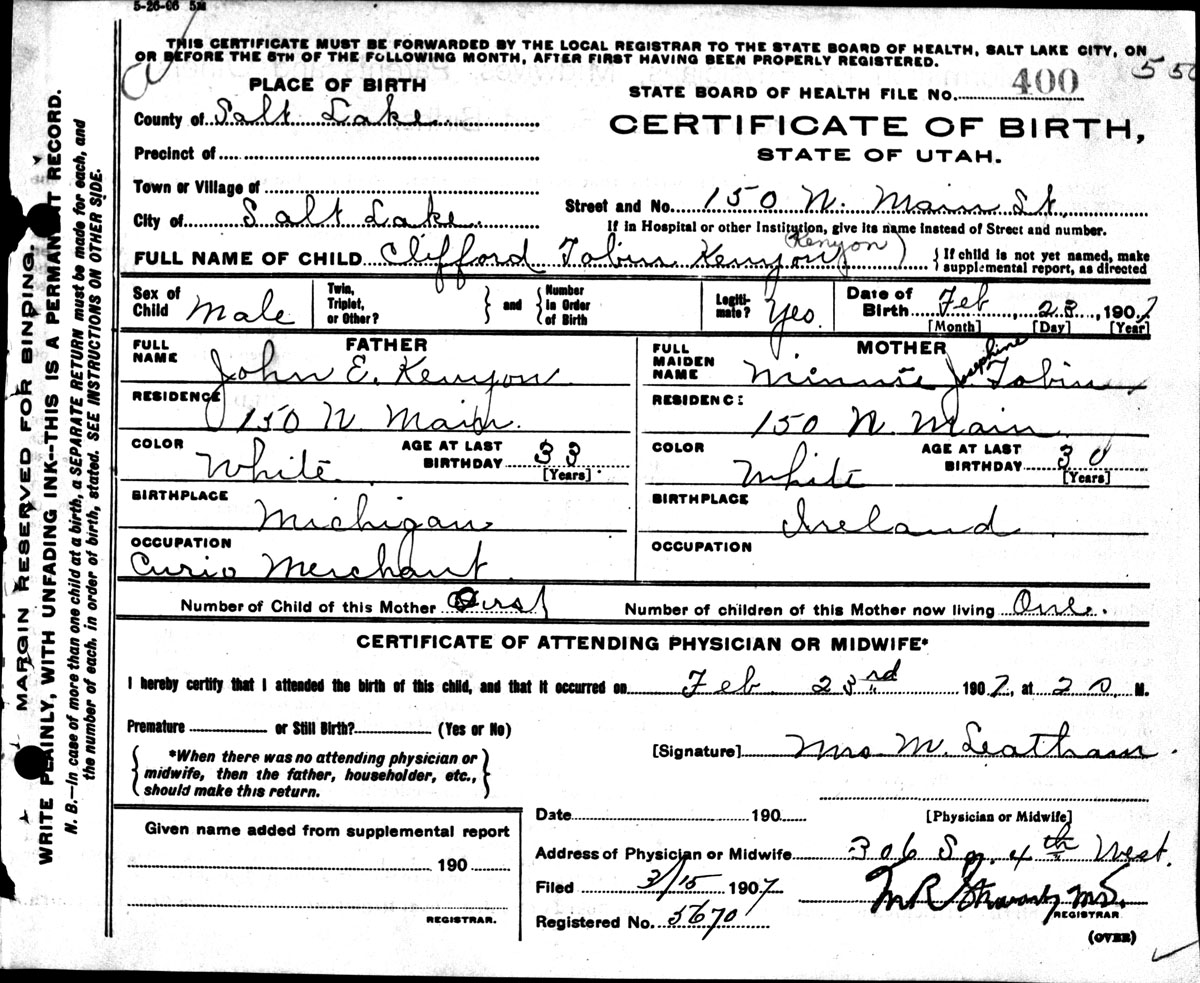 5-26-06 5M
THIS CERTIFICATE MUST BE FORWARDED BY THE LOCAL REGISTRAR TO THE STATE BOARD OF HEALTH, SALT LAKE CITY, ON
OR BEFORE THE 5TH OF THE FOLLOWING MONTH, AFTER FIRST HAVING BEEN PROPERLY REGISTERED.
550
PLACE OF BIRTH
STATE BOARD OF HEALTH FILE NO. 400
County of Salt Lake
CERTIFICATE OF BIRTH,
STATE OF UTAH.
Precinct of
Town or Village of
City of Salt Lake
Street and No. 150 N. Main St.
If in Hospital or other Institution, give its name instead of Street and number.
(Kenyon)
FULL NAME OF CHILD Clifford Tobin Kenyon
{ If child is not yet named, make
supplemental report, as directed
Sex of Child Male
Twin, Triplet, or Other? } and { Number in Order of Birth
Legiti-mate? Yes.
Date of Birth Feb 23, 1907
[Month] [Day] [Year]
FATHER
FULL NAME John E. Kenyon
RESIDENCE 150 N Main.
COLOR White
AGE AT LAST BIRTHDAY 33
[Years]
BIRTHPLACE Michigan
OCCUPATION Curio Merchant
MOTHER
FULL MAIDEN NAME Minnie Josephine Tobin
RESIDENCE 150 N. Main
COLOR White
AGE AT LAST BIRTHDAY 30
[Years]
BIRTHPLACE Ireland
OCCUPATION
Number of Child of this Mother First
Number of children of this Mother now living One.
CERTIFICATE OF ATTENDING PHYSICIAN OR MIDWIFE*
I hereby certify that I attended the birth of this child, and that it occurred on Feb 23rd 1907, at 20 M.
Premature or Still Birth? (Yes or No)
{ *When there was no attending physician or
midwife, then the father, householder, etc.,
should make this return. }
[Signature] Mrs M. Leatham
[Physician or Midwife]
Date 190
Address of Physician or Midwife 306 So. 4th West.
Given name added from supplemental report
190
REGISTRAR.
Filed 3/15 1907
Registered No. 5670
REGISTRAR
(OVER)
MARGIN RESERVED FOR BINDING.
WRITE PLAINLY, WITH UNFADING INK—THIS IS A PERMANENT RECORD.
N. B.—In case of more than one child at a birth, a SEPARATE RETURN must be made for each, and
the number of each, in order of birth, stated. SEE INSTRUCTIONS ON OTHER SIDE.